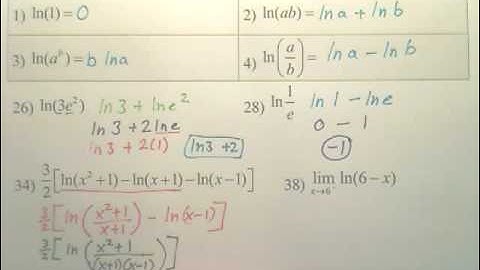 1) ln(1) = 0
2) ln(ab) = ln a + ln b
3) ln(aᵇ) = b lna
4) ln(a/b) = ln a - ln b
26) ln(3e²) ln 3 + ln e²
ln 3 + 2 ln e
ln 3 + 2(1) ln3 + 2
28) ln 1/e ln 1 - ln e
0 - 1
-1
34) 3/2[ln(x²+1)-ln(x+1)-ln(x-1)]
3/2[ln(x²+1/x+1) - ln(x-1)]
3/2[ln(x²+1/(x+1)(x-1))]
38) lim x→6⁻ ln(6-x)